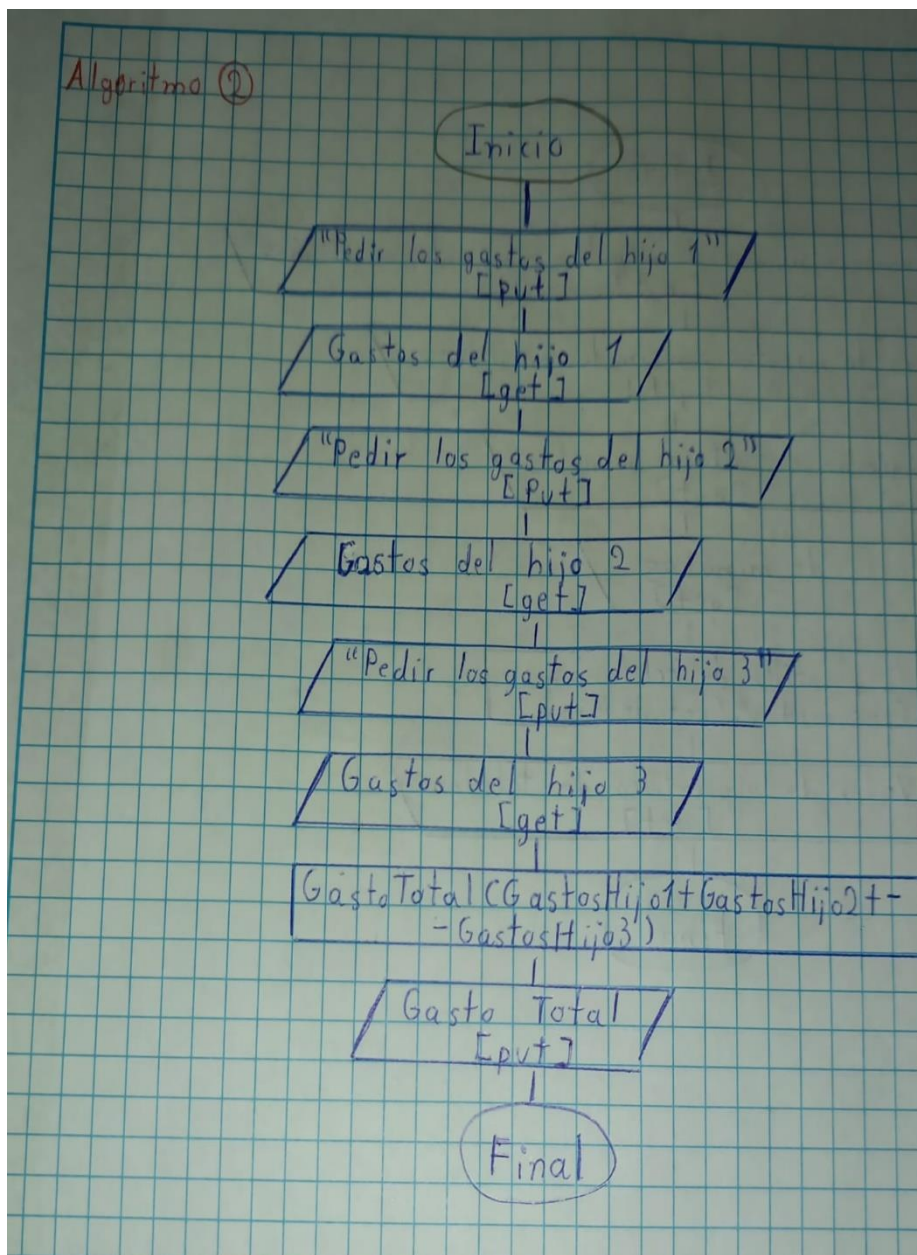 Algoritmo ②
Inicio
"Pedir los gastos del hijo 1"
[put]
Gastos del hijo 1
[get]
"Pedir los gastos del hijo 2"
[Put]
Gastos del hijo 2
[get]
"Pedir los gastos del hijo 3"
[put]
Gastos del hijo 3
[get]
GastoTotal(GastosHijo1+GastosHijo2+-
-GastosHijo3)
Gasto Total
[put]
Final